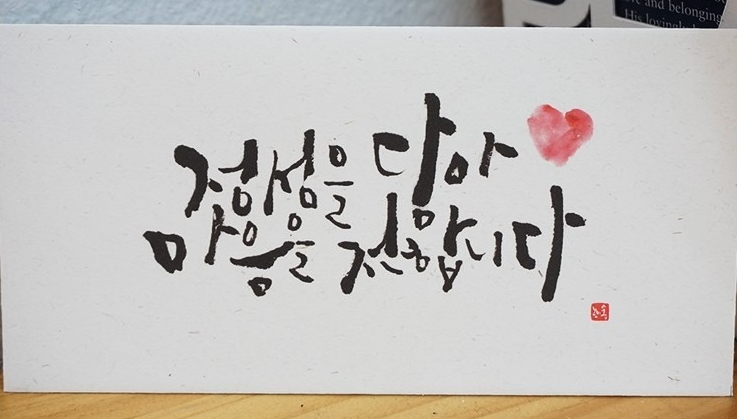 ve and belonging
His lovingly
정성을 담아
마음을 전합니다